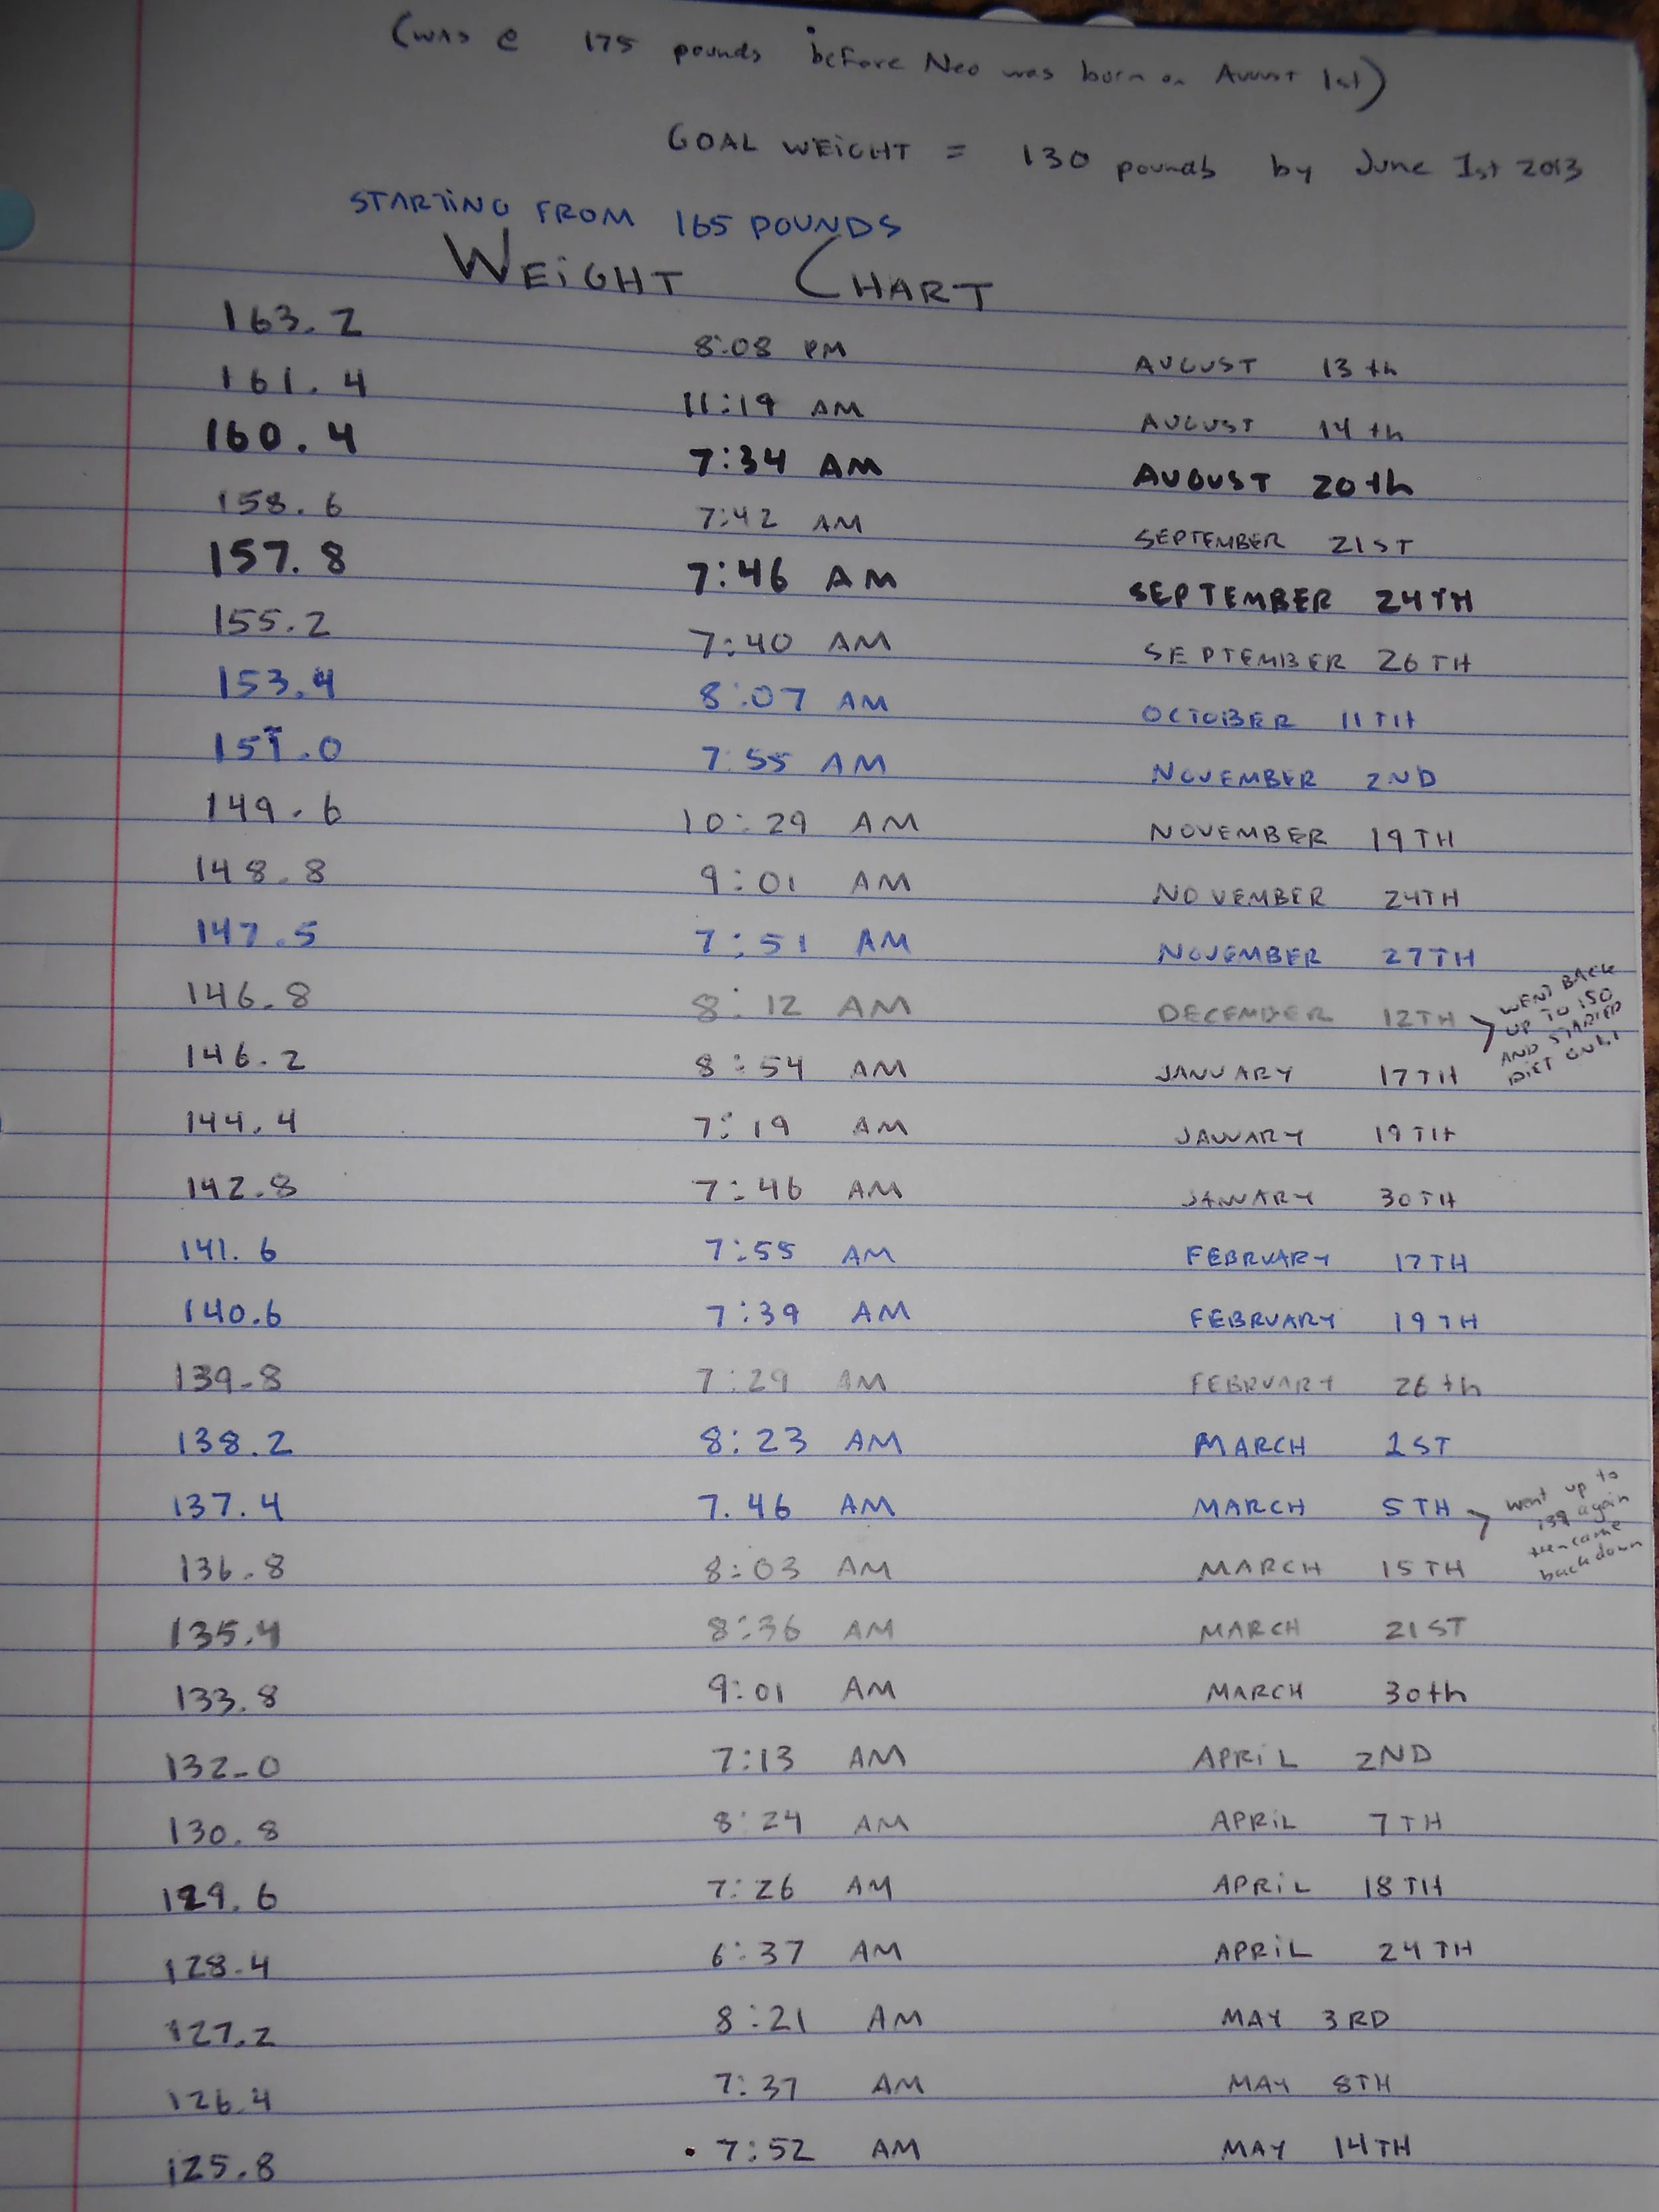 (was @ 175 pounds before Neo was born on August 1st)
GOAL WEIGHT = 130 pounds by June 1st 2013
STARTING FROM 165 POUNDS
WEIGHT CHART
163.2 8:08 PM AUGUST 13th
161.4 11:19 AM AUGUST 14th
160.4 7:34 AM AUGUST 20th
158.6 7:42 AM SEPTEMBER 21ST
157.8 7:46 AM SEPTEMBER 24TH
155.2 7:40 AM SEPTEMBER 26TH
153.4 8:07 AM OCTOBER 11TH
151.0 7:55 AM NOVEMBER 2ND
149.6 10:29 AM NOVEMBER 19TH
148.8 9:01 AM NOVEMBER 24TH
147.5 7:51 AM NOVEMBER 27TH
146.8 8:12 AM DECEMBER 12TH
WENT BACK
UP TO 150
AND STARTED
DIET
146.2 8:54 AM JANUARY 17TH
144.4 7:19 AM JANUARY 19TH
142.8 7:46 AM JANUARY 30TH
141.6 7:55 AM FEBRUARY 17TH
140.6 7:39 AM FEBRUARY 19TH
139.8 7:29 AM FEBRUARY 26th
138.2 8:23 AM MARCH 1ST
137.4 7.46 AM MARCH 5TH
went up to
139 again
then came
back down
136.8 8:03 AM MARCH 15TH
135.4 8:36 AM MARCH 21ST
133.8 9:01 AM MARCH 30th
132.0 7:13 AM APRIL 2ND
130.8 8:24 AM APRIL 7TH
129.6 7:26 AM APRIL 18TH
128.4 6:37 AM APRIL 24TH
127.2 8:21 AM MAY 3RD
126.4 7:37 AM MAY 8TH
125.8 7:52 AM MAY 14TH